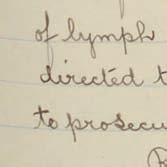 of lymph
directed t
to prosecu